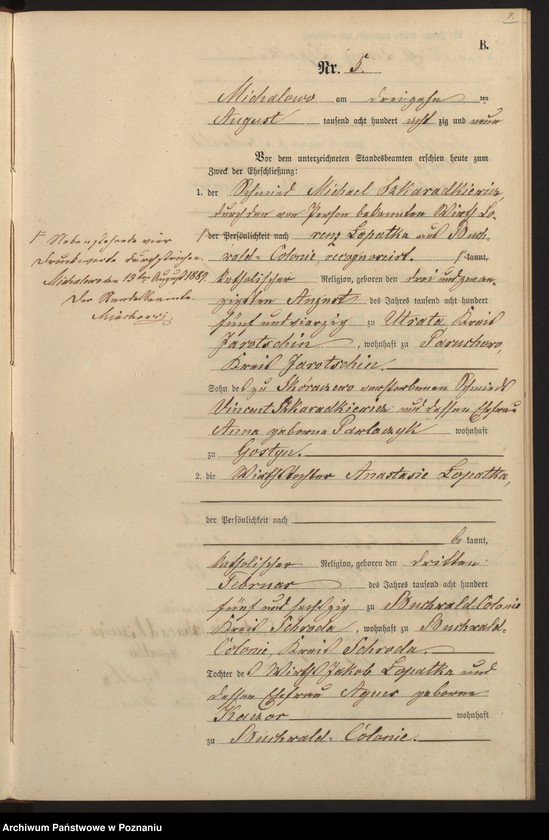 9.
B.
Nr. 5.
Michalowo am dreizehn ten
August tausend acht hundert acht zig und neun
Vor dem unterzeichneten Standesbeamten erschien heute zum
Zweck der Eheschließung:
1. der Schmied Michael Szkaradkiewicz
durch den von Person bekannten Wirth Lo-
der Persönlichkeit nach renz Lopatka aus Buch-
wald-Colonie, recognoscirt. kannt,
katholischer Religion, geboren den drei und zwan-
zigsten August des Jahres tausend acht hundert
fünf und vierzig zu Utrata Kreis
Jarotschin, wohnhaft zu Paruchowo,
Kreis Jarotschin.
Sohn des zu Skoraczewo verstorbenen Schmieds
Vincent Szkaradkiewicz und dessen Ehefrau
Anna geborene Pawlaczyk wohnhaft
zu Gostyn.
2. die Wirthstochter Anastasie Lopatka,
der Persönlichkeit nach
be kannt,
katholischer Religion, geboren den dritten
Februar des Jahres tausend acht hundert
fünf und sechszig zu Buchwald-Colonie
Kreis Schroda, wohnhaft zu Buchwald-
Colonie, Kreis Schroda.
Tochter des Wirths Jakob Lopatka und
dessen Ehefrau Agnes geborene
Kaczor wohnhaft
zu Buchwald-Colonie.
Nebenstehende vier
Druckworte durchstrichen.
Michalowo den 13ten August 1889.
Der Standesbeamte
Archiwum Państwowe w Poznaniu